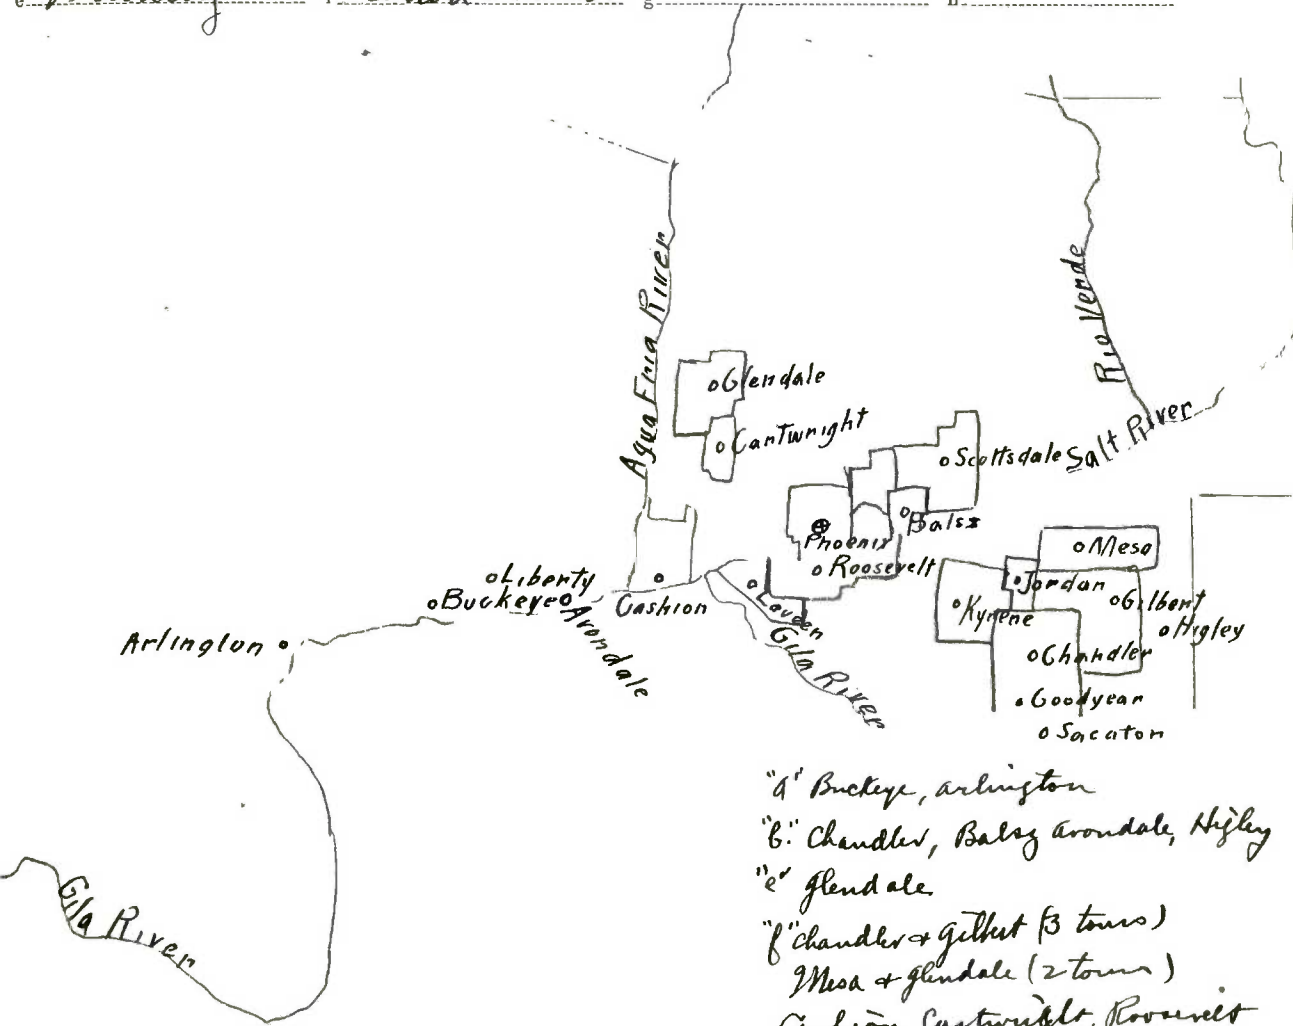 e g h
Agua Fria River
Rio Verde
Salt River
Glendale
Cartwright
Scottsdale
Balsz
Phoenix
Roosevelt
Mesa
Jordan
Gilbert
Higley
Kyrene
Chandler
Goodyear
Sacaton
Liberty
Buckeye
Avondale
Cashion
Laveen
Gila River
Arlington
Gila River
"a" Buckeye, arlington
"b." Chandler, Balsz Avondale, Higley
"e" Glendale
"f" Chandler & Gilbert (3 tours)
Mesa & Glendale (2 tours)
Cashion, Cartwright, Roosevelt